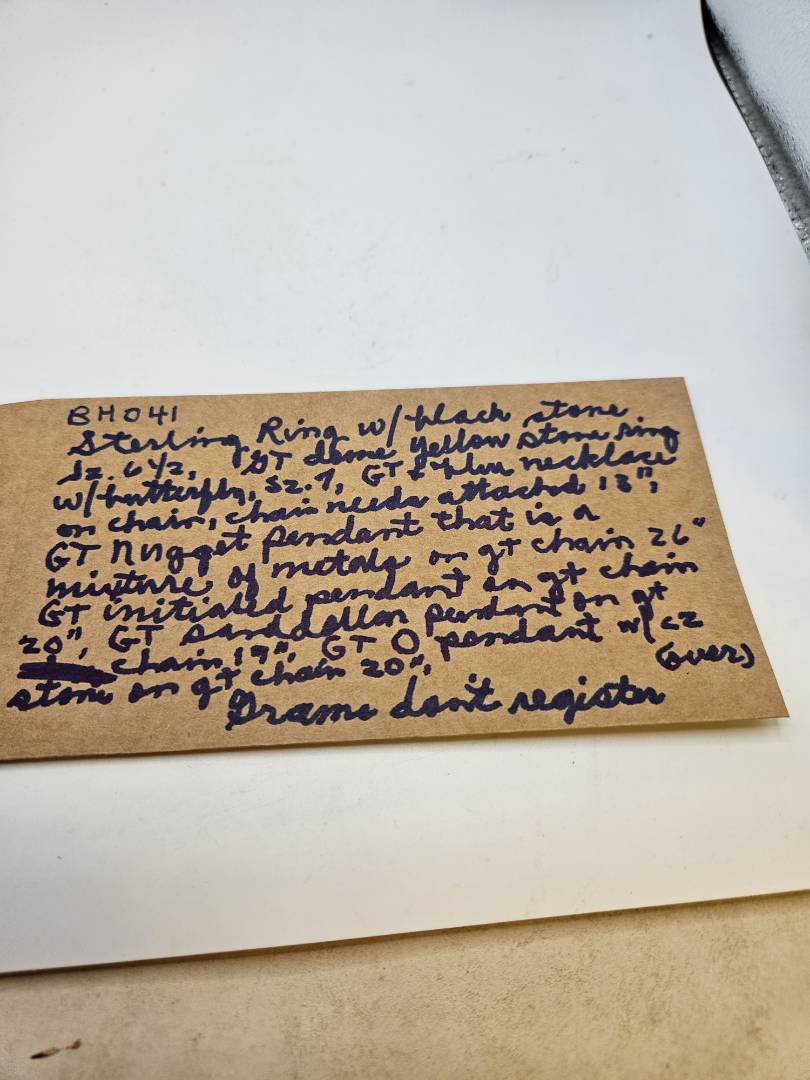 BH041
Sterling Ring w/ black stone
sz. 6 1/2, GT dome yellow stone ring
w/ butterfly, sz. 7, GT + blue necklace
on chain, chain needs attached 18",
GT Nugget pendant that is a
mixture of metals on gt chain 26"
GT initialed pendant on gt chain
20", GT sanddollar pendant on gt
chain 19", GT O pendant w/ cz
stone on gt chain 20",
(over)
Grams don't register